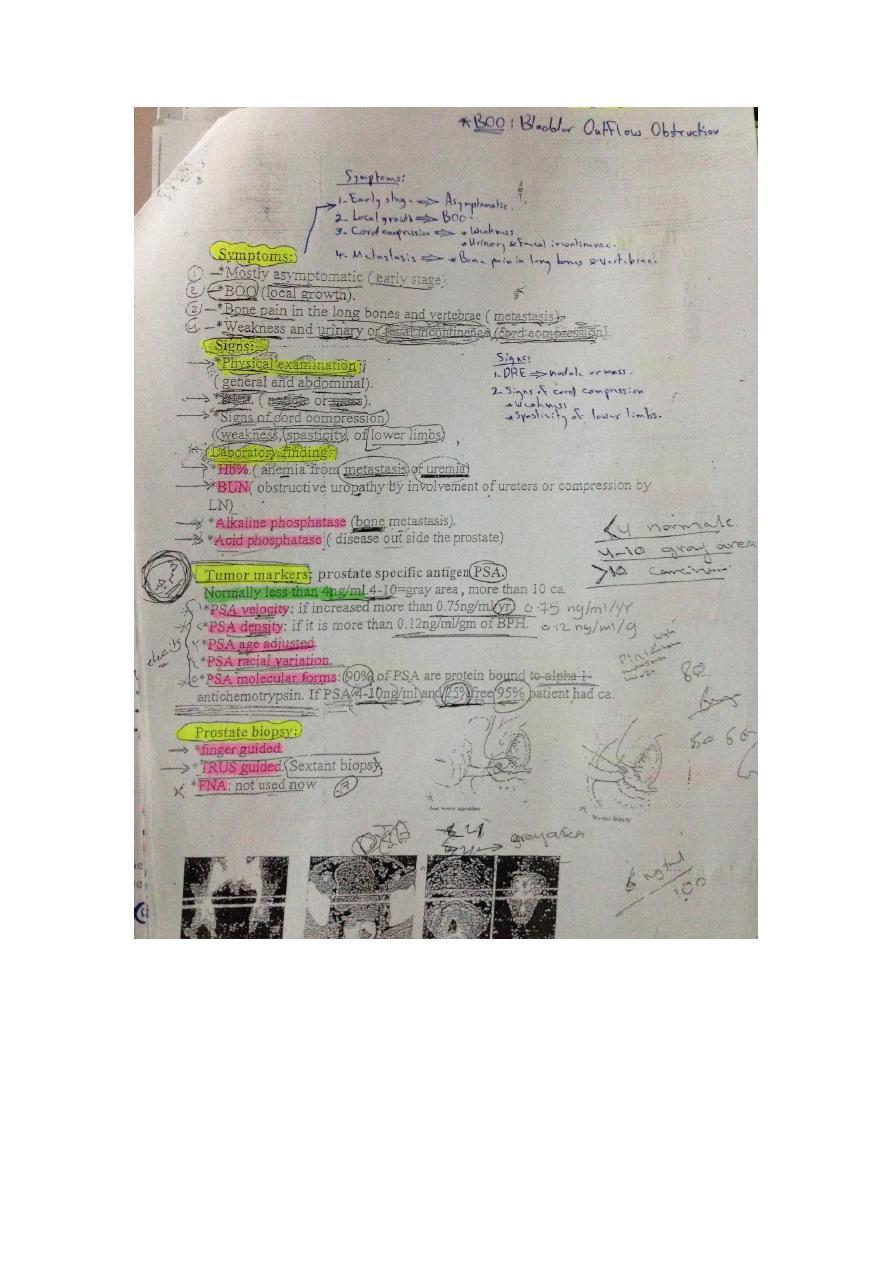 *BOO: Bladder OutFlow Obstruction
Symptoms:
1- Early stag. ⇒ Asymptomatic.
2- Local growth ⇒ BOO.
3- Cord compression ⇒ * Weakness
* Urinary & Faecal incontinence.
4- Metastasis ⇒ * Bone pain in long bones & vertebrae.
Symptoms:
1 *Mostly asymptomatic ( early stage).
2 *BOO (local growth).
3 *Bone pain in the long bones and vertebrae ( metastasis).
4 *Weakness and urinary or fecal incontinence (cord compression).
Signs:
*Physical examination:
( general and abdominal).
*DRE. ( nodule or mass).
*Signs of cord compression
(weakness, spasticity, of lower limbs)
Signs:
1- DRE ⇒ nodule or mass.
2- Signs of cord compression
* Weakness
* Spasticity of lower limbs.
Laboratory finding:
*Hb%.( anemia from metastasis or uremia)
*BUN( obstructive uropathy by involvement of ureters or compression by
LN)
*Alkaline phosphatase (bone metastasis).
*Acid phosphatase ( disease out side the prostate)
<4 normale
4-10 gray area
>10 carcinom
Tumor markers; prostate specific antigen PSA.
Normally less than 4ng/ml,4-10=gray area , more than 10 ca.
*PSA velocity: if increased more than 0.75ng/ml/yr, 0.75 ng/ml/yr
*PSA density: if it is more than 0.12ng/ml/gm of BPH. 0.12 ng/ml/g
*PSA age adjusted
*PSA racial variation.
*PSA molecular forms: 90% of PSA are protein bound to alpha 1-
antichemotrypsin. If PSA 4-10ng/ml and 25% free 95% patient had ca.
80
50 60
Prostate biopsy:
*finger guided.
*TRUS guided.(Sextant biopsy.
*FNA: not used now
PSA <4
4 → gray area
6 ng/ml
100